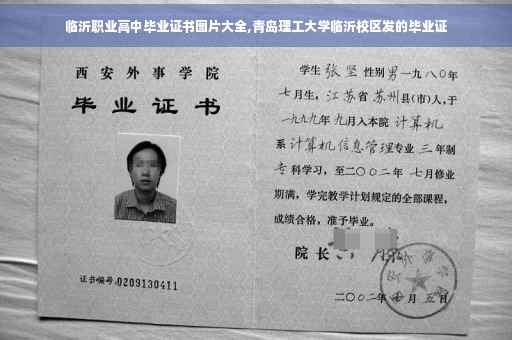 临沂职业高中毕业证书图片大全,青岛理工大学临沂校区发的毕业证
西安外事学院
毕业证书
证书编号:0209130411
学生 张坚 性别男 一九八〇年
七月生，江苏省 苏州县(市)人，于
一九九九年九月入本院 计算机
系 计算机信息管理专业 三年制
专科学习，至二〇〇二年 七月修业
期满，学完教学计划规定的全部课程，
成绩合格，准予毕业。
院长
二〇〇二年 月五日